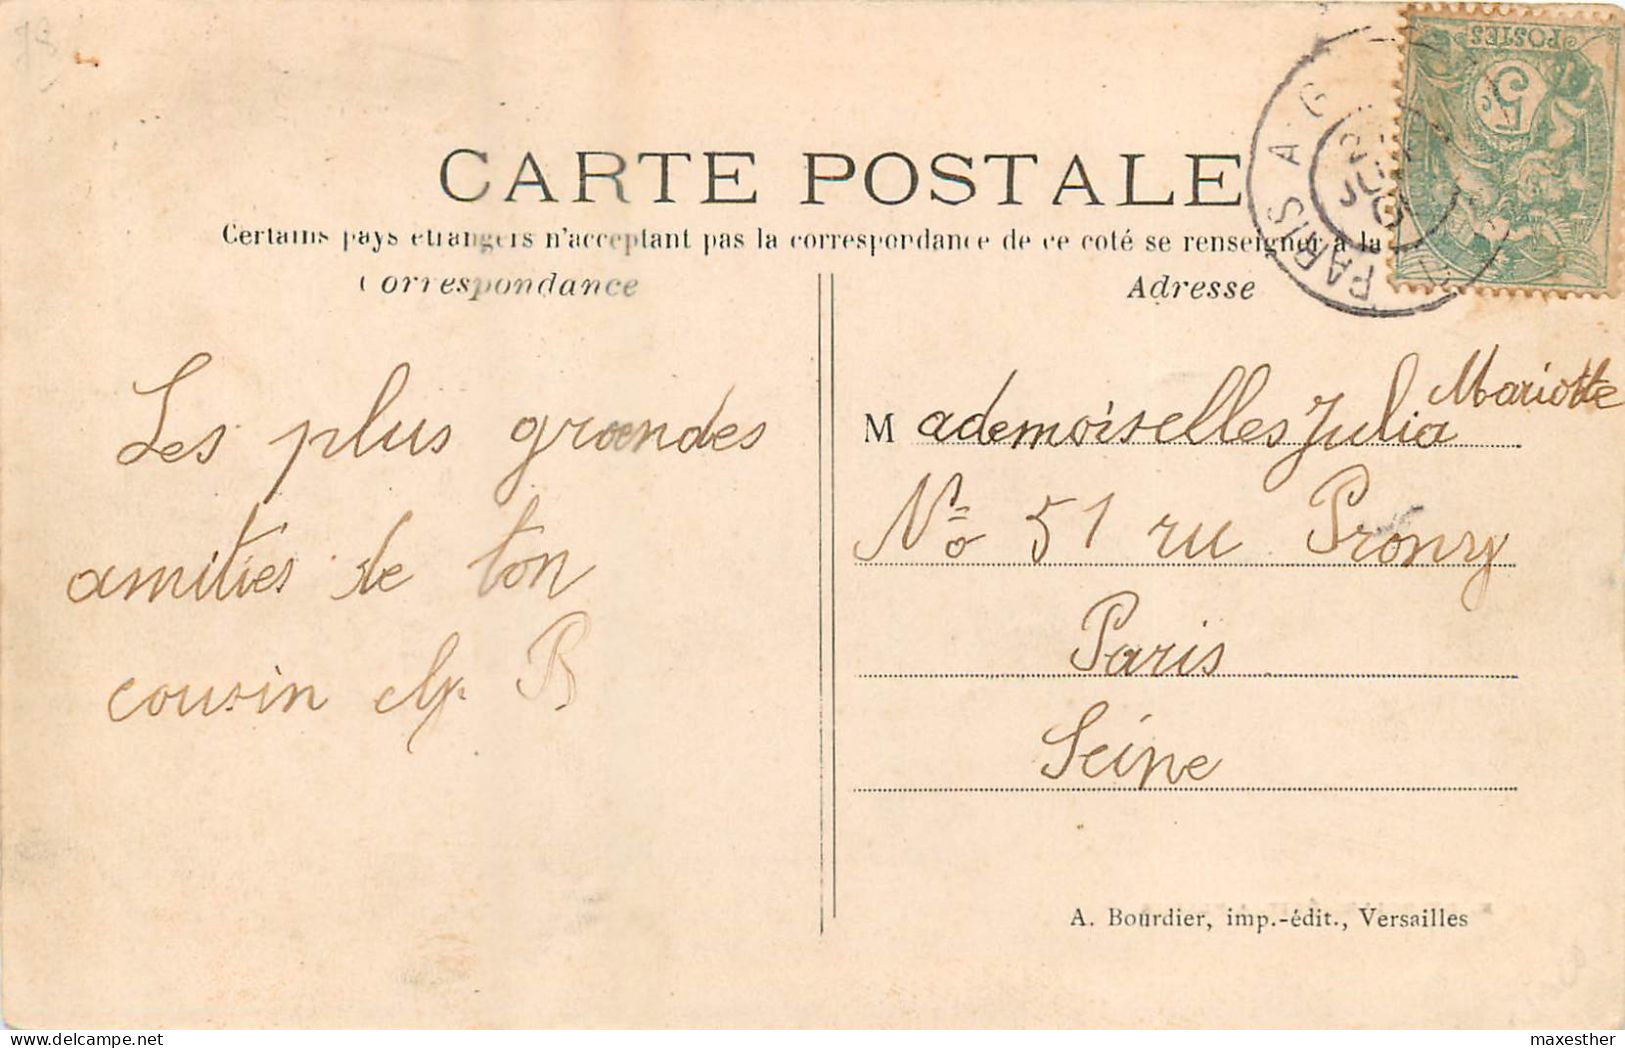 CARTE POSTALE
Certains pays étrangers n'acceptant pas la correspondance de ce coté se renseigner à la
Correspondance
Adresse
POSTES
5c
PARIS A G
JUIL
Les plus grandes
amities de ton
cousin B
Mademoiselles Julia Mariotte
No 51 ru Prony
Paris
Seine
A. Bourdier, imp.-édit., Versailles
maxesther